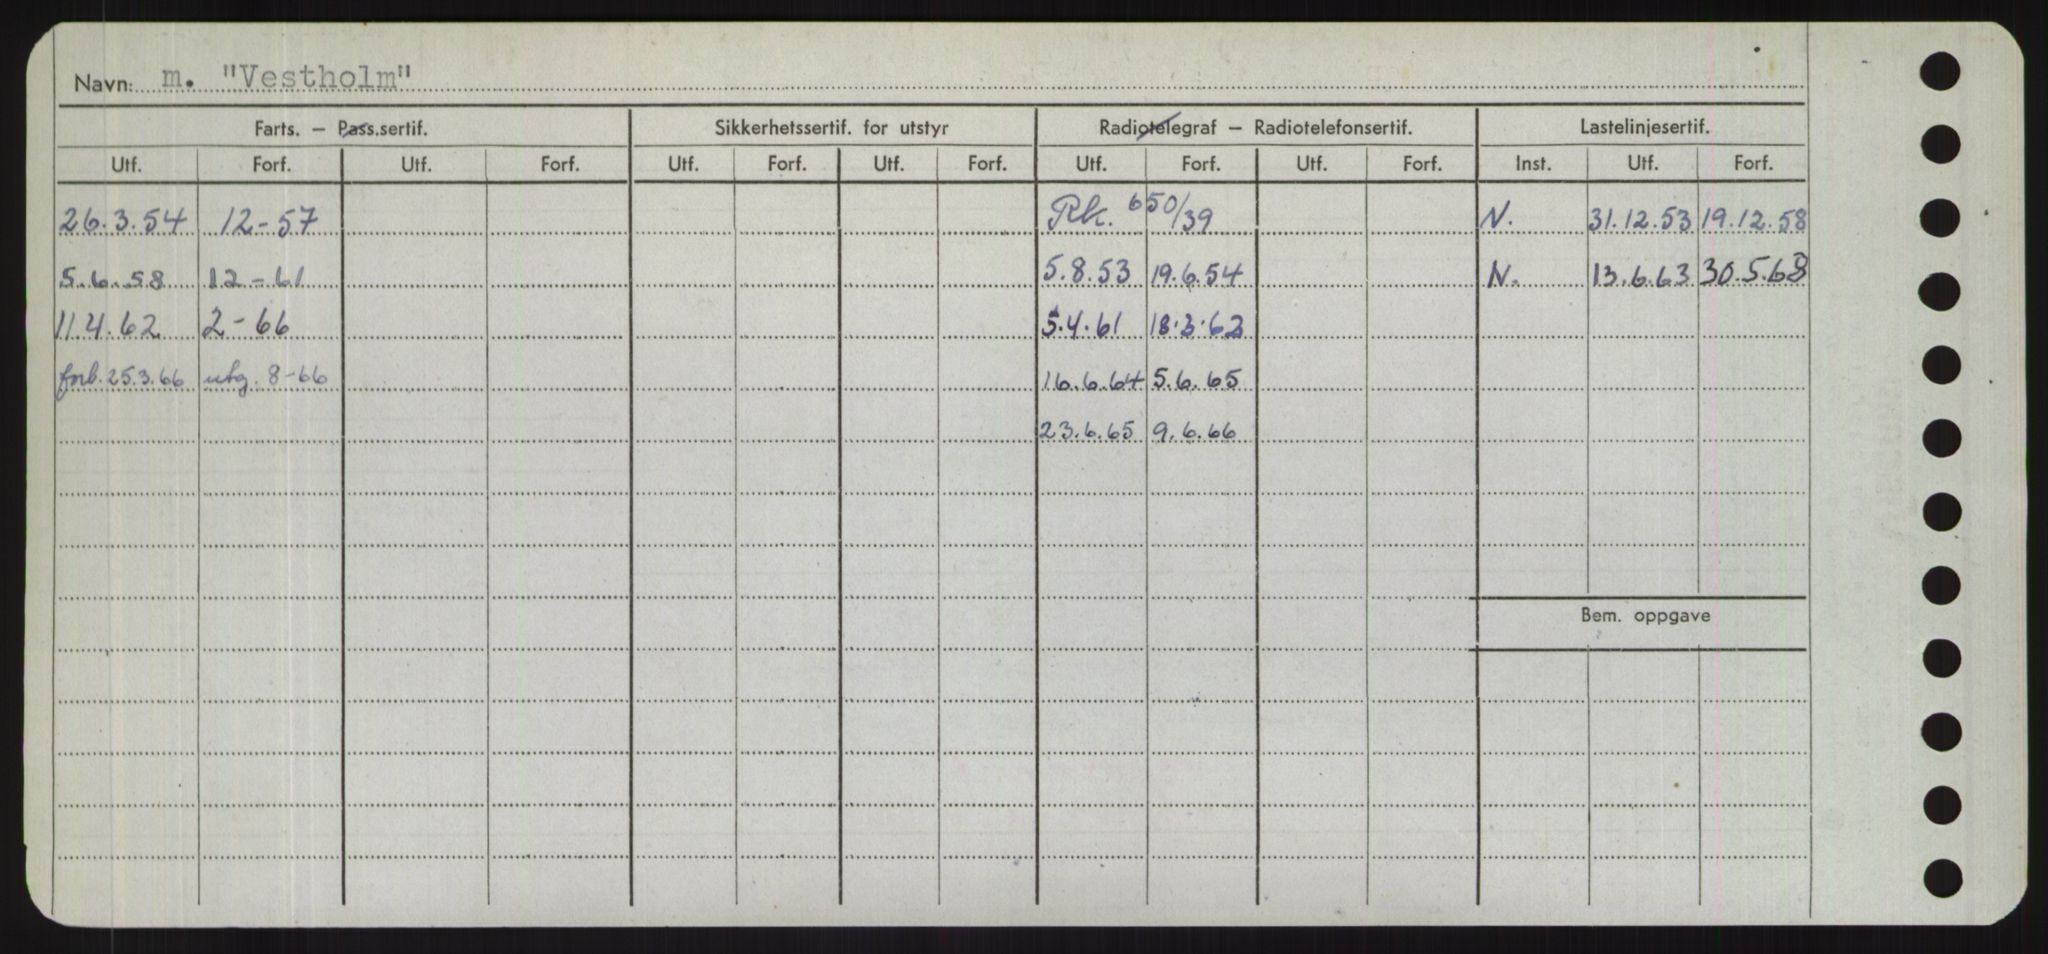 Navn: m. "Vestholm"
Farts. – Pass.sertif. Sikkerhetssertif. for utstyr Radiotelegraf – Radiotelefonsertif. Lastelinjesertif.
Utf. Forf. Utf. Forf. Utf. Forf. Utf. Forf. Utf. Forf. Utf. Forf. Inst. Utf. Forf.
26.3.54 12-57 Rk. 650/39 N. 31.12.53 19.12.58
5.6.58 12-61 5.8.53 19.6.54 N. 13.6.63 30.5.68
11.4.62 2-66 5.4.61 18.3.62
forb. 25.3.66 utg. 8-66 16.6.64 5.6.65
23.6.65 9.6.66
Bem. oppgave